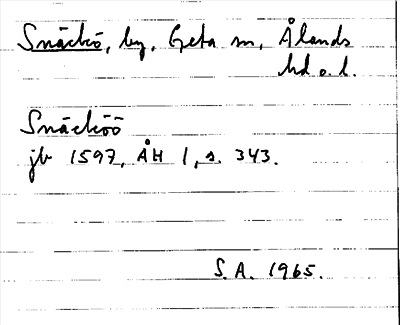 Snäckö, by, Geta sn, Ålands
hd o. l.
Snäcköö
jb 1597, ÅH 1, s. 343.
S. A. 1965.